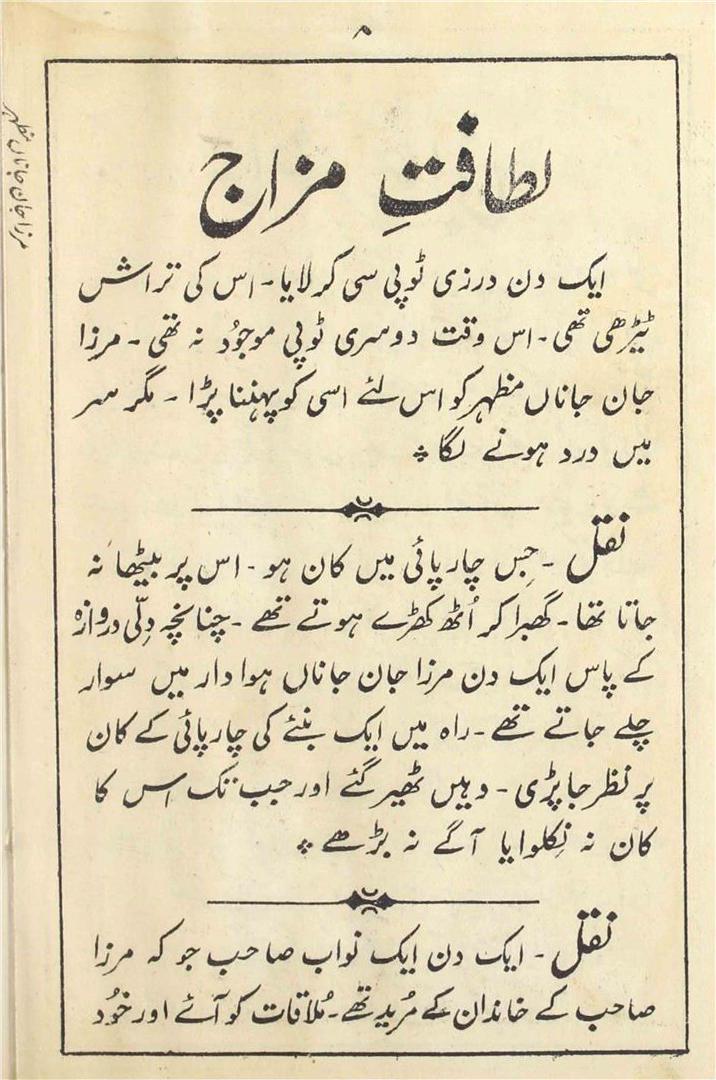 ۸
مرزا جان جاناں مظہر
لطافتِ مزاج
ایک دن درزی ٹوپی سی کر لایا۔ اس کی تراش
ٹیڑھی تھی۔ اس وقت دوسری ٹوپی موجُود نہ تھی۔ مرزا
جان جاناں مظہر کو اس لئے اسی کو پہننا پڑا۔ مگر سر
میں درد ہونے لگا ⁘
نقل۔ جِس چارپائی میں کان ہو۔ اس پر بیٹھا نہ
جاتا تھا۔ گھبرا کر اُٹھ کھڑے ہوتے تھے۔ چنانچہ دلّی دروازہ
کے پاس ایک دن مرزا جان جاناں ہوادار میں سوار
چلے جاتے تھے۔ راہ میں ایک بنئے کی چارپائی کے کان
پر نظر جا پڑی۔ وہیں ٹھیر گئے اور جب تک اس کا
کان نہ نِکلوایا آگے نہ بڑھے ⁘
نقل۔ ایک دن ایک نواب صاحب جو کہ مرزا
صاحب کے خاندان کے مُرید تھے۔ مُلاقات کو آئے اور خُود